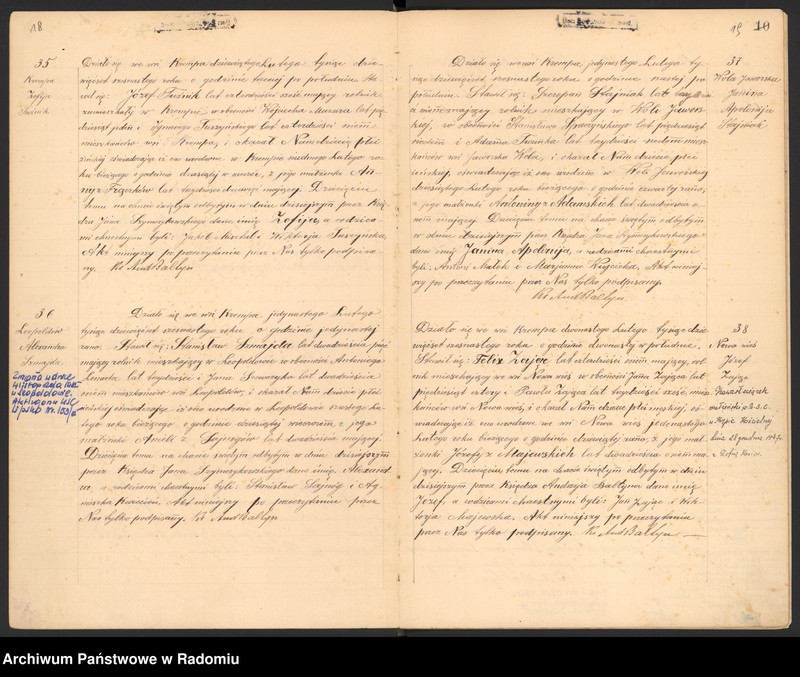 18
35
Krempa
Zofija
Działo się we wsi Krempa dziewiątego Lutego tysiąc dzie-
więćset szesnastego roku o godzinie trzeciej po południu. Sta-
wił się: Józef lat czterdzieści sześć mający rolnik
zamieszkały w Krempie w obecności Wojciecha Mazura lat pięć
dziesiąt jeden i lat czterdzieści siedm
mieszkańców wsi Krempa, i okazał Nam dziecię płci
żeńskiej oświadczając iż ono urodzone w Krempie siódmego Lutego ro-
ku bieżącego o godzinie dziesiątej w nocy, z jego małżonki An-
ny z lat trzydzieści dziewięć mającej. Dziecięciu
temu na chrzcie świętym odbytym w dniu dzisiejszym przez Księ
dza Jana Szymczykowskiego dano imię Zofija, a rodzica-
mi chrzestnymi byli: Jakób i Wiktorja
Akt niniejszy po przeczytaniu przez Nas tylko podpisa-
ny. Ks And Bałtyn
36
Leopoldów
Alexandra
Szmajda
Zmarła w dniu
4 listopada 1982
w Leopoldowie.
Akt zgonu USC
Działo się we wsi Krempa jedynastego Lutego
tysiąc dziewięćset szesnastego roku o godzinie jedynastej
rano. Stawił się: Stanisław Szmajda lat dwadzieścia pięć
mający rolnik mieszkający w Leopoldowie w obecności Antoniego
lat trzydzieści i Jana lat dwadzieścia
siedm mieszkańców wsi Leopoldów; i okazał Nam dziecię płci
żeńskiej oświadczając iż ono urodzone w Leopoldowie szóstego Lu-
tego roku bieżącego o godzinie dziesiątej wieczorem, z jego
małżonki Anieli z lat dwadzieścia mającej.
Dziecięciu temu na chrzcie świętym odbytym w dniu dzisiejszym
przez Księdza Jana Szymczykowskiego dano imię Alexand-
ra, a rodzicami chrzestnymi byli: Stanisław i Ag-
nieszka Kwiecień. Akt niniejszy po przeczytaniu przez
Nas tylko podpisany. Ks And Bałtyn
19 10
37
Wola Jaworska
Janina
Apolonija
Działo się we wsi Krempa jedynastego Lutego ty-
siąc dziewięćset szesnastego roku, o godzinie szóstej po
południu. Stawił się: Szczepan lat
mający rolnik mieszkający w Woli Jawor-
skiej, w obecności Stanisława lat pięćdziesiąt
i Adama lat trzydzieści siedem miesz-
kańców wsi Jaworska Wola, i okazał Nam dziecię płci
żeńskiej, oświadczając iż ono urodzone w Woli Jaworskiej
dziesiątego Lutego roku bieżącego o godzinie czwartej rano,
z jego małżonki Antoniny z Adamskich lat dwadzieścia
ośm mającej. Dziecięciu temu na chrzcie świętym odbytym
w dniu dzisiejszym przez Księdza Jana Szymczykowskiego
dano imię Janina Apolonija, a rodzicami chrzestnymi
byli: Antoni i Marjanna Kupidura, Akt niniej-
szy po przeczytaniu przez Nas tylko podpisany.
Ks And Bałtyn
38
Nowa wieś
Józef
Zając
Zawarł związek
Działo się we wsi Krempa dwunastego Lutego tysiąc dzie-
więćset szesnastego roku o godzinie dwunastej w południe.
Stawił się: Felix Zając lat czterdzieści ośm mający, rol-
nik mieszkający we wsi Nowa wieś w obecności Jana Zająca lat
pięćdziesiąt cztery i Pawła Zająca lat trzydzieści sześć miesz-
kańców wsi Nowa wieś, i okazał Nam dziecię płci męskiej, oś-
wiadczając iż ono urodzone we wsi Nowa wieś jedenastego
Lutego roku bieżącego o godzinie dziewiątej rano, z jego mał-
żonki Józefy z Majewskich lat dwadzieścia ośm ma-
jącej. Dziecięciu temu na chrzcie świętym odbytym w dniu
dzisiejszym przez Księdza Andrzeja Bałtyna dano imię
Józef, a rodzicami chrzestnymi byli: Jan Zając i Wik-
torja Majewska. Akt niniejszy po przeczytaniu
przez Nas tylko podpisany. Ks And Bałtyn
Archiwum Państwowe w Radomiu